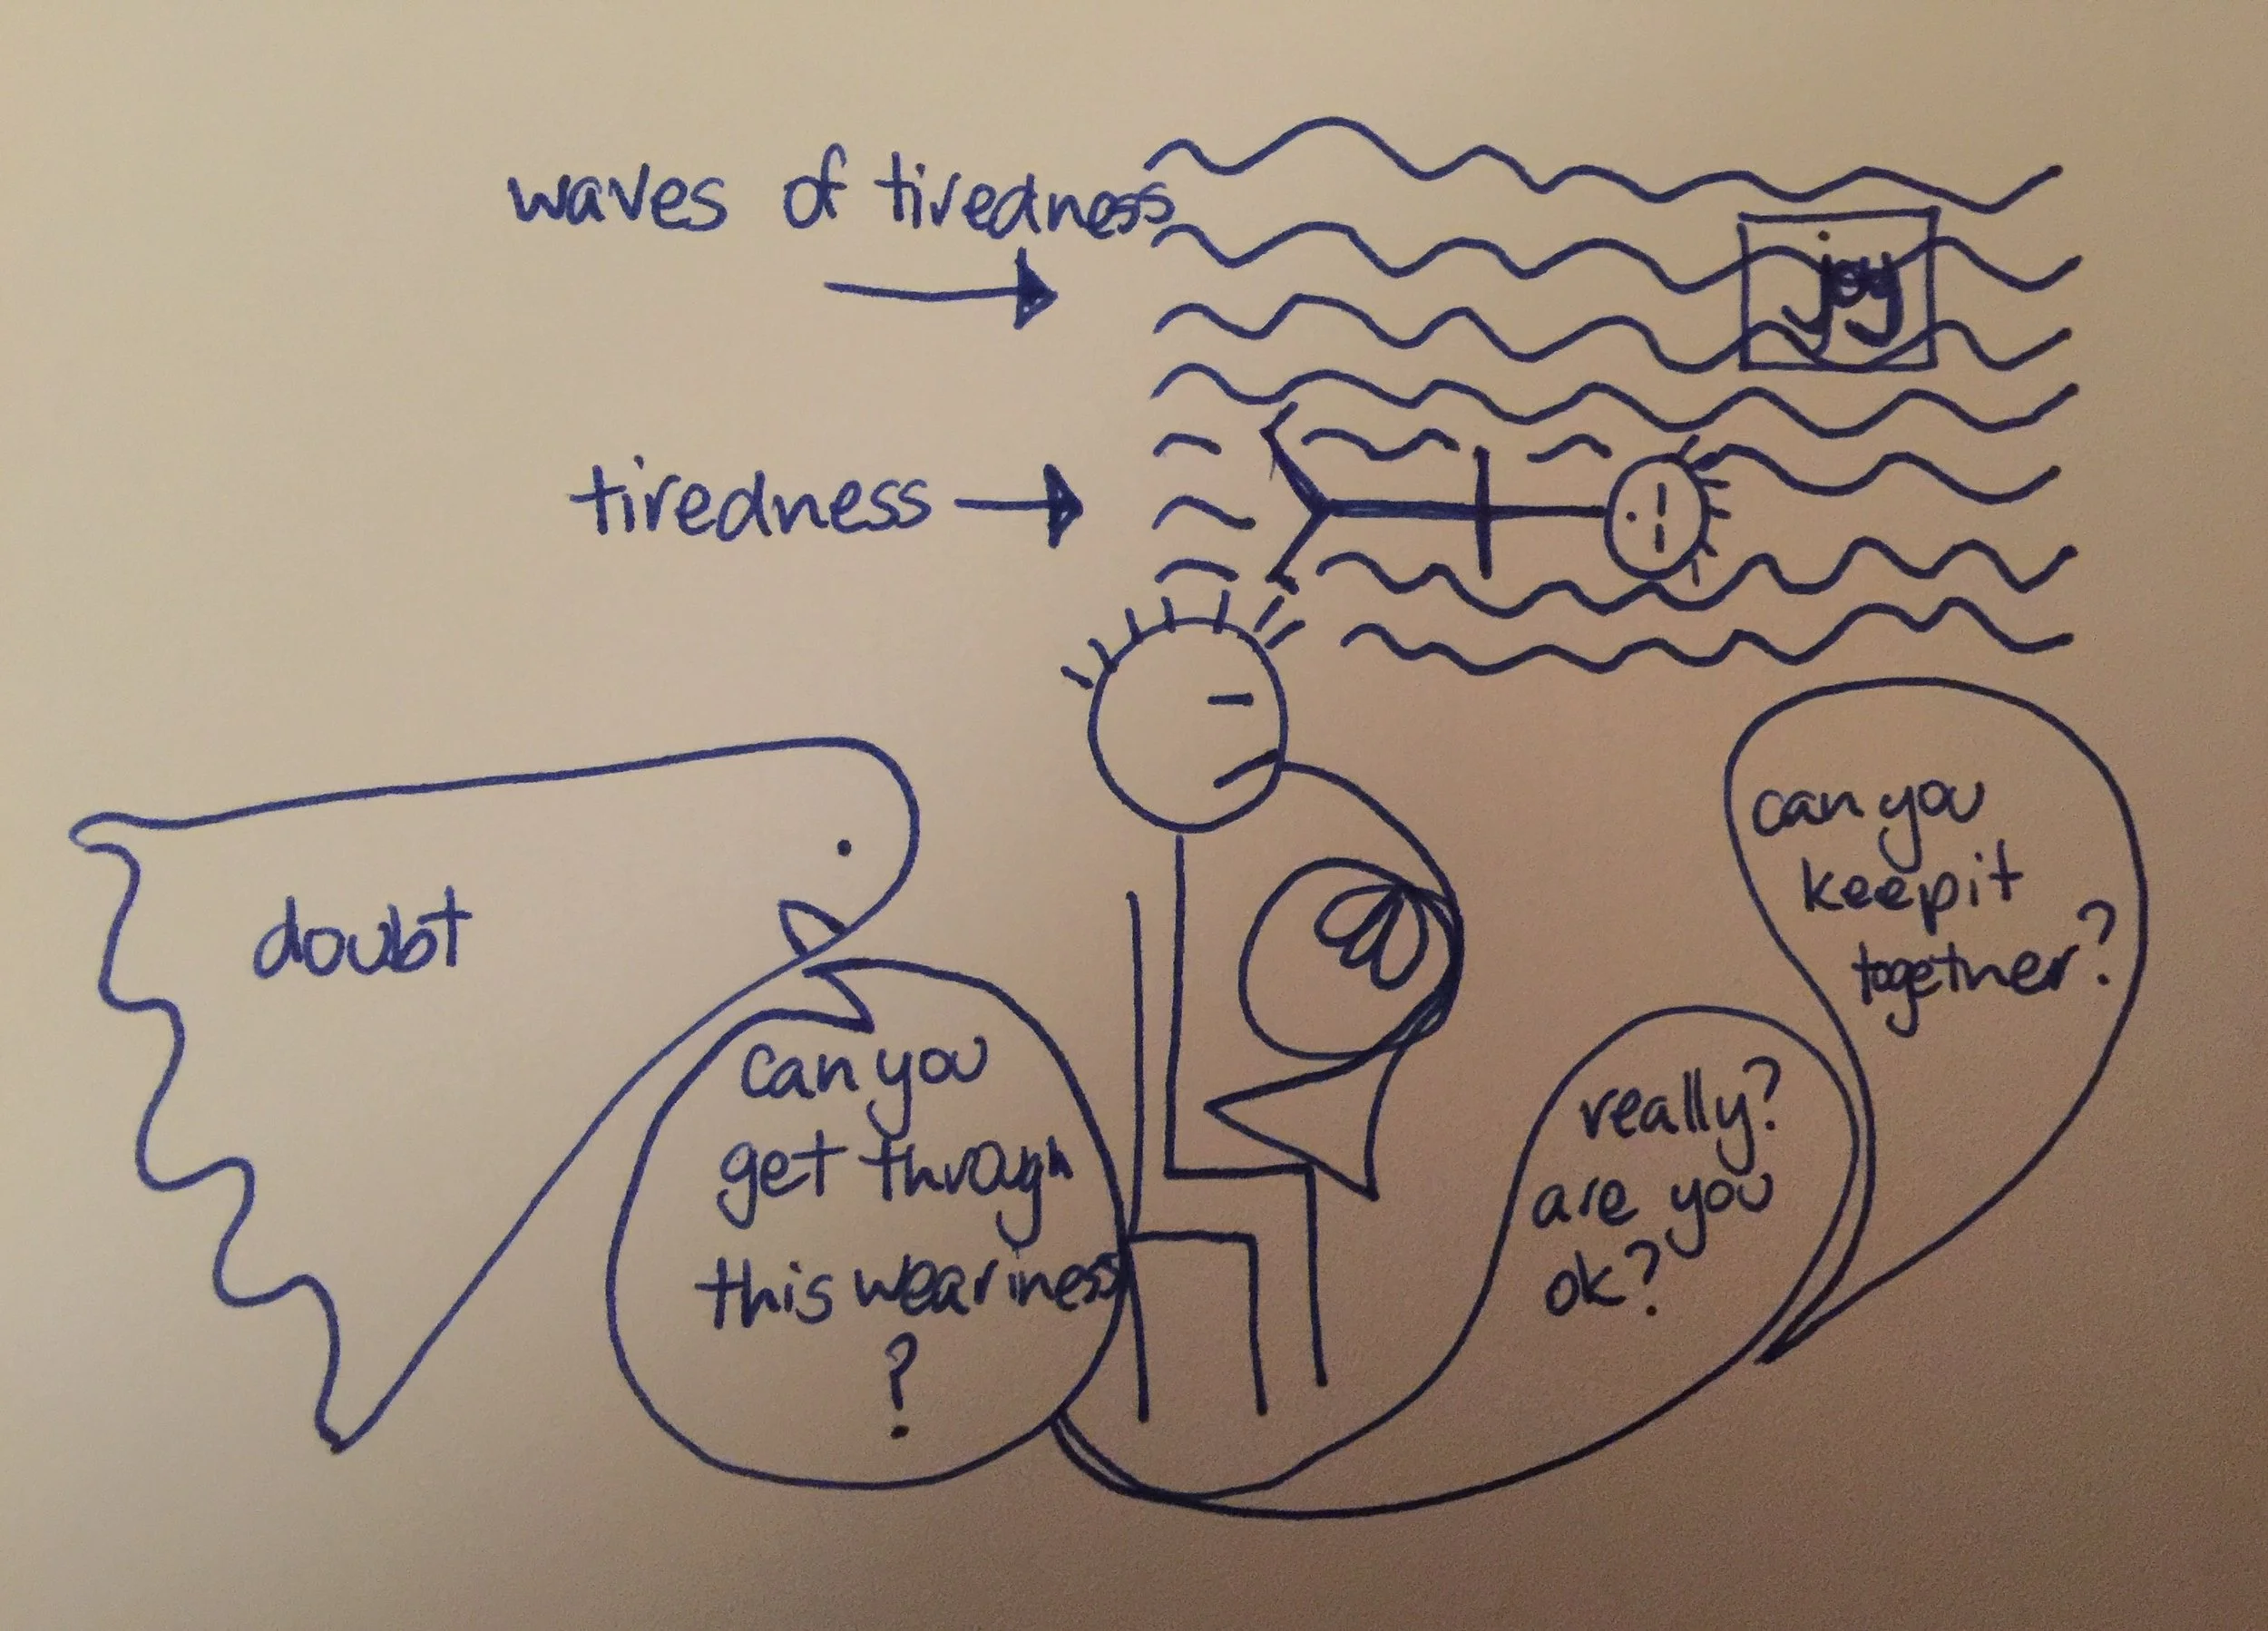 waves of tiredness
joy
tiredness
doubt
can you
get through
this weariness
?
really?
are you
ok?
can you
keep it
together?